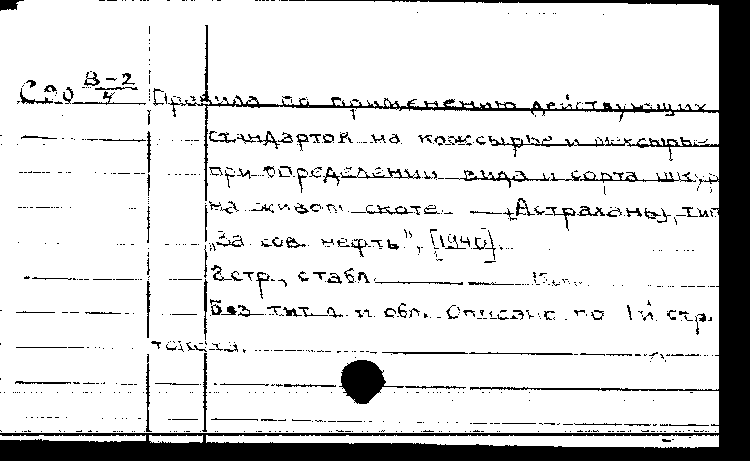 С90 В-2/4 Правила по применению действующих
стандартов на кожсырье и мехсырье
при определении вида и сорта шкур
на живом скоте. — [Астрахань], тип.
„За сов. нефть", [1940].
2 стр., с табл.
Без тит. л. и обл. Описано по 1й стр.
текста.